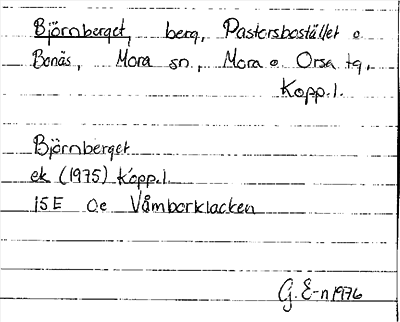 Björnberget, berg, Pastorsbostället o
Bonäs, Mora sn, Mora o. Orsa tg,
Kopp. l.
Björnberget
ek (1975) Kopp. l.
15E 0e Våmborklacken
G. E-n 1976